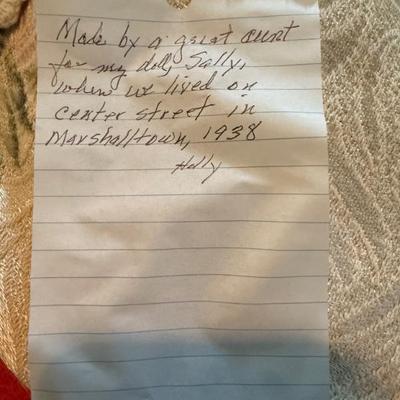 Made by a great aunt
for my doll, Sally,
when we lived on
center street in
Marshalltown, 1938
Holly